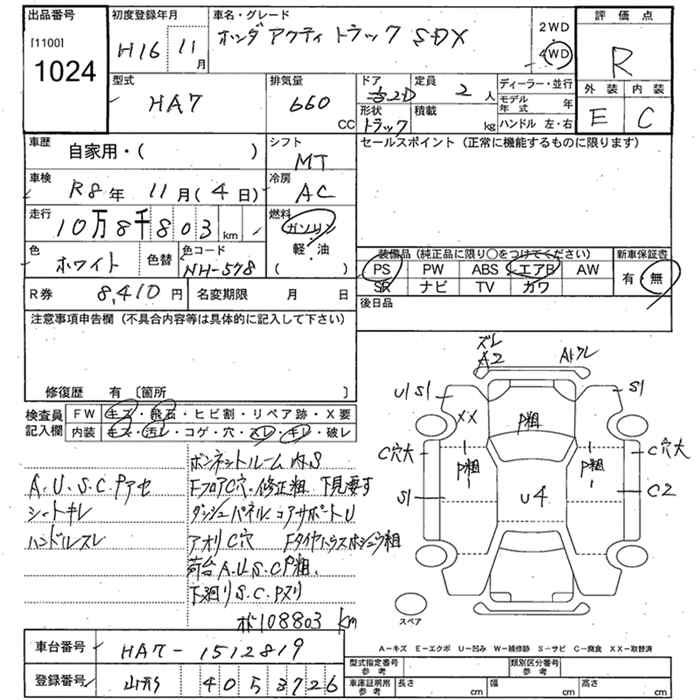 出品番号
[1100]
1024
初度登録年月
H16 11月
車名・グレード
ホンダ アクティ トラック SDX
2WD
4WD
評価点
R
外装 内装
E C
型式
HA7
排気量
660 CC
ドア
2D
形状
トラック
定員
2人
積載
kg
ディーラー・並行
モデル年式 年
ハンドル 左・右
車歴
自家用・( )
シフト
MT
セールスポイント (正常に機能するものに限ります)
車検
R8年 11月(4日)
冷房
AC
走行
10万8千803km
燃料
ガソリン
軽・油
( )
色
ホワイト
色替
色コード
NH-578
装備品 (純正品に限り○をつけてください)
PS PW ABS エアB AW
SR ナビ TV カワ
新車保証書
有 無
R券 8,410円
名変期限 月 日
後日品
注意事項申告欄 (不具合内容等は具体的に記入して下さい)
修復歴 有 〔箇所 〕
検査員記入欄
FW キズ・飛石・ヒビ割・リペア跡・X要
内装 キズ・汚レ・コゲ・穴・スレ・キレ・破レ
ボンネットルーム内S
A.U.S.C.Pアセ
FフロアC穴.修正粗.下見要す
シートキレ
ダッシュパネル.コアサポートU
ハンドルスレ
アオリC穴
荷台A.U.S.C P粗.
下廻りS.C.Pヌリ
108803km
ズレ
A2
Aトクレ
U1S1
S1
XX
P粗
C穴大
C穴大
P粗
P粗
S1
U4
C2
スペア
A−キズ E−エクボ U−凹み W−補修跡 S−サビ C−腐食 XX−取替済
車台番号
HA7-1512819
登録番号
4053726
型式指定番号
参考
類別区分番号
参考
車庫証明用
参考
長さ cm
幅 cm
高さ cm